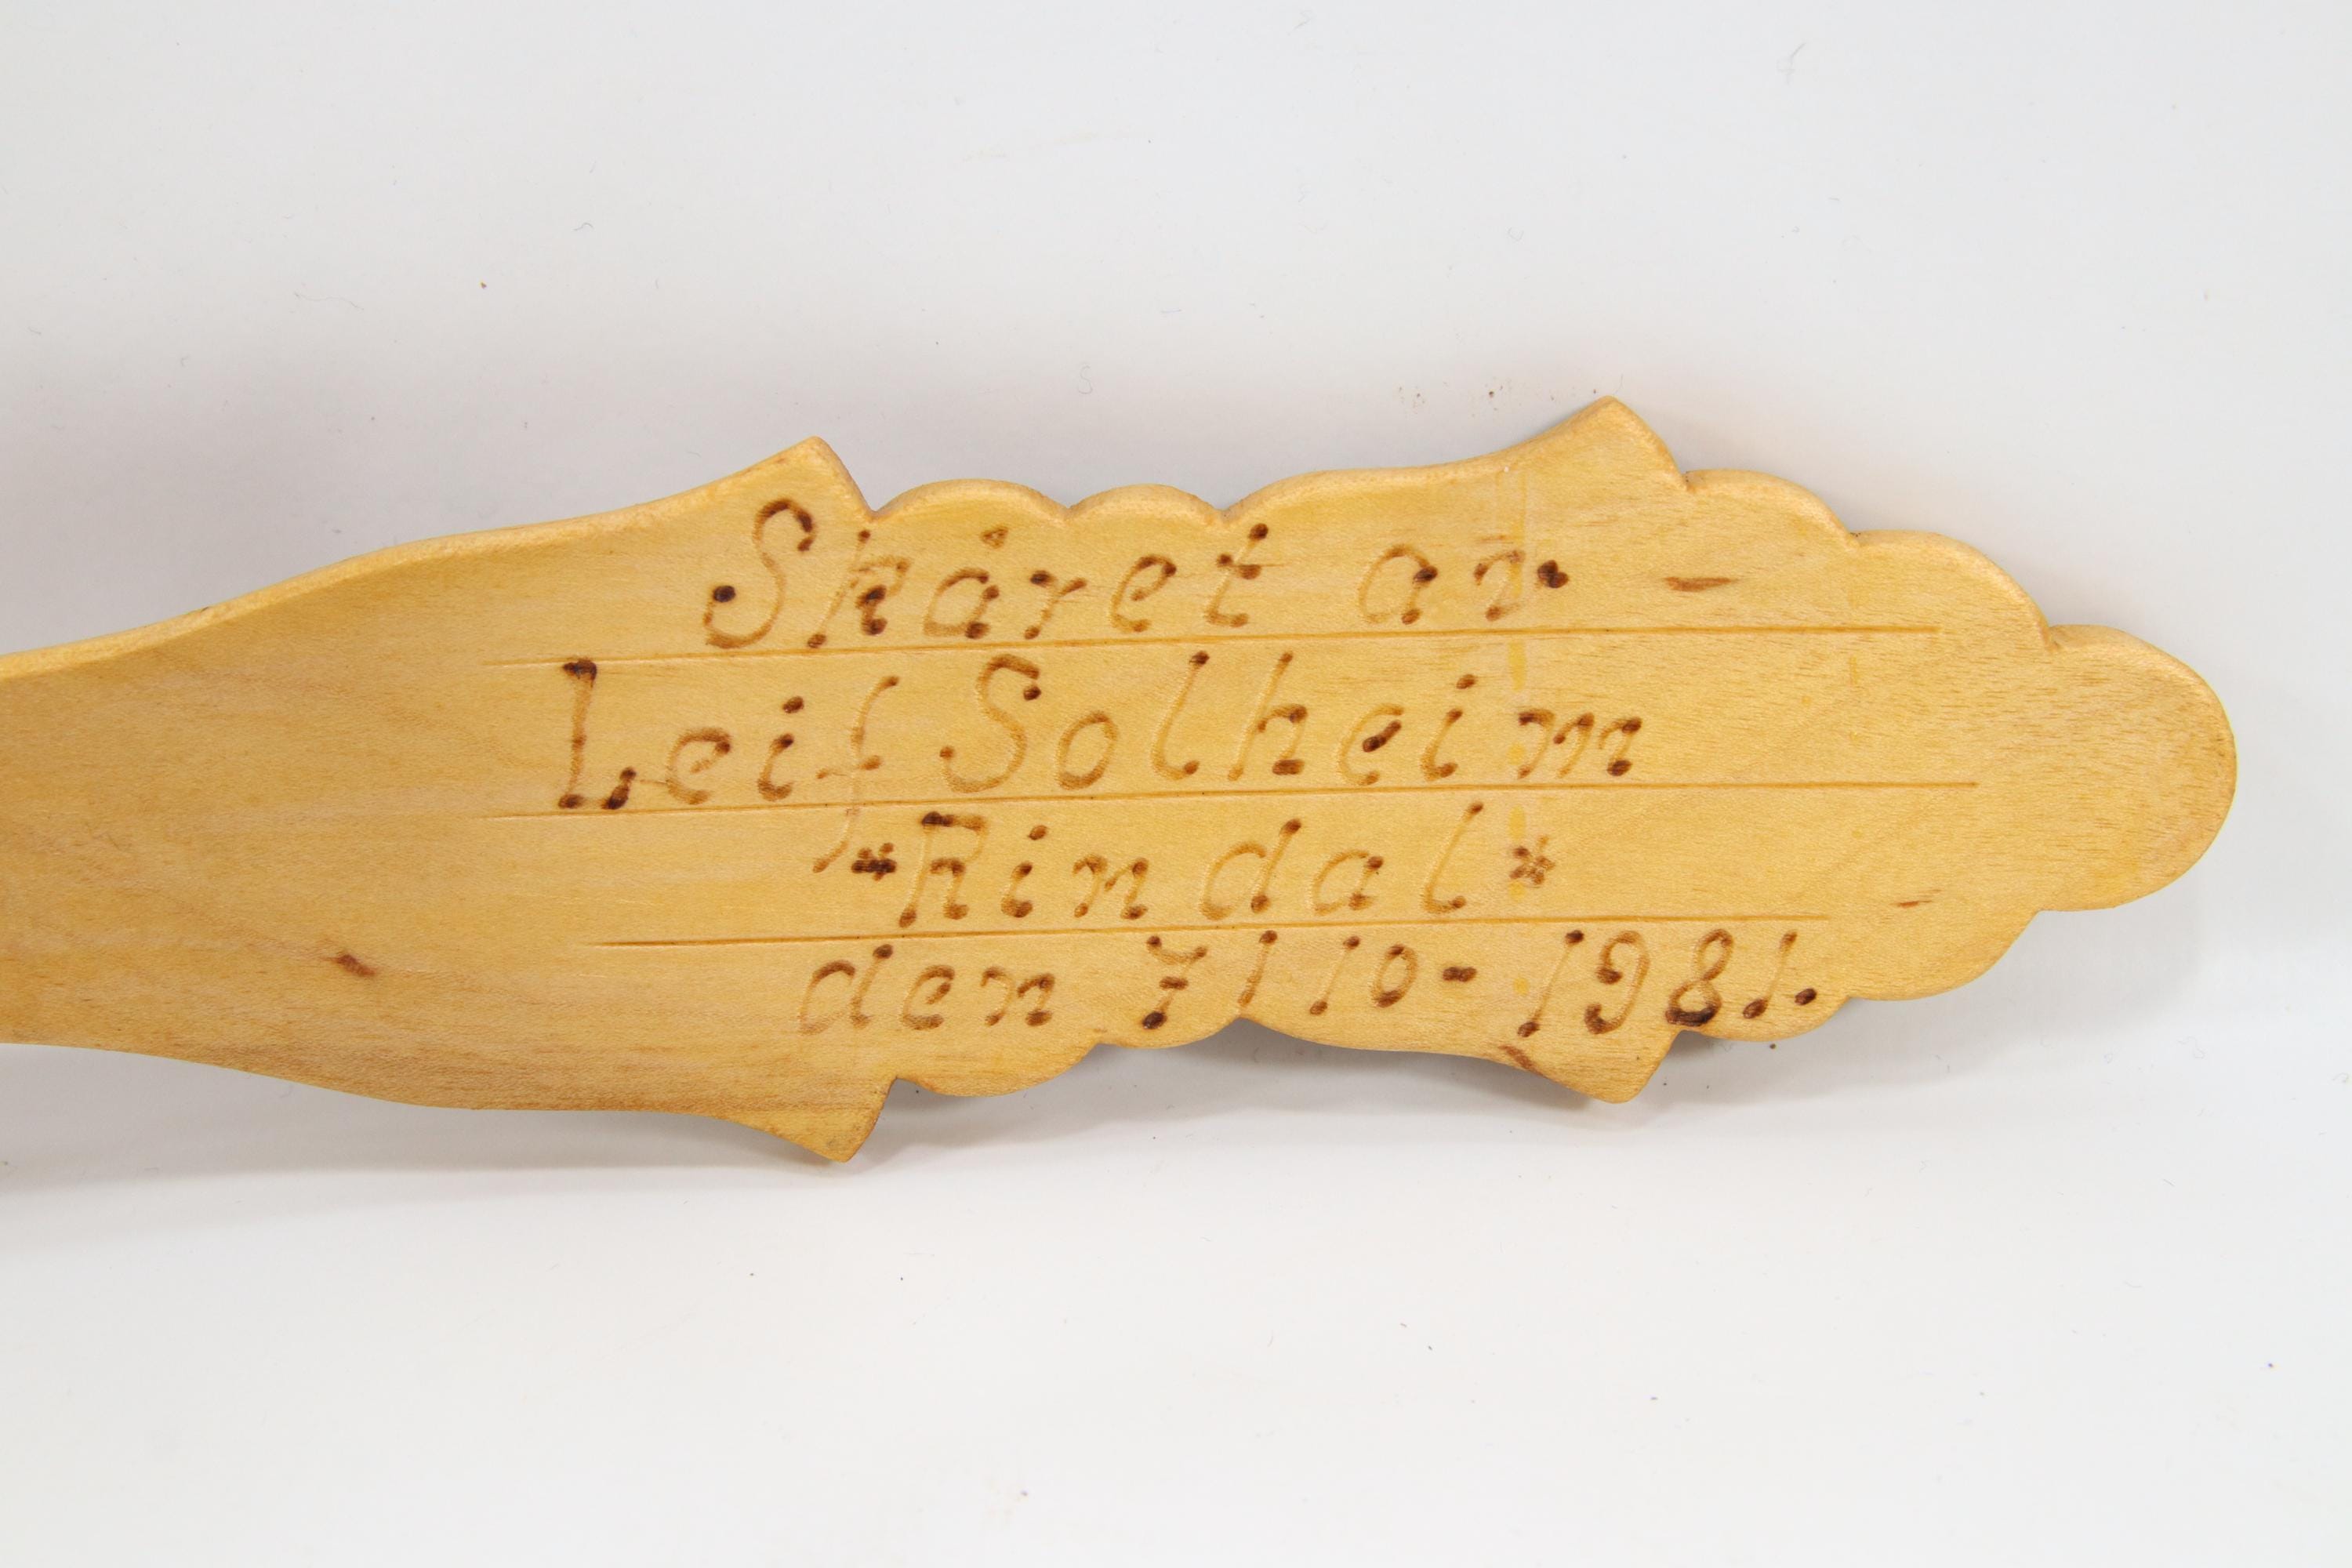 Skåret av
Leif Solheim
*Rindal*
den 7/10-1981.